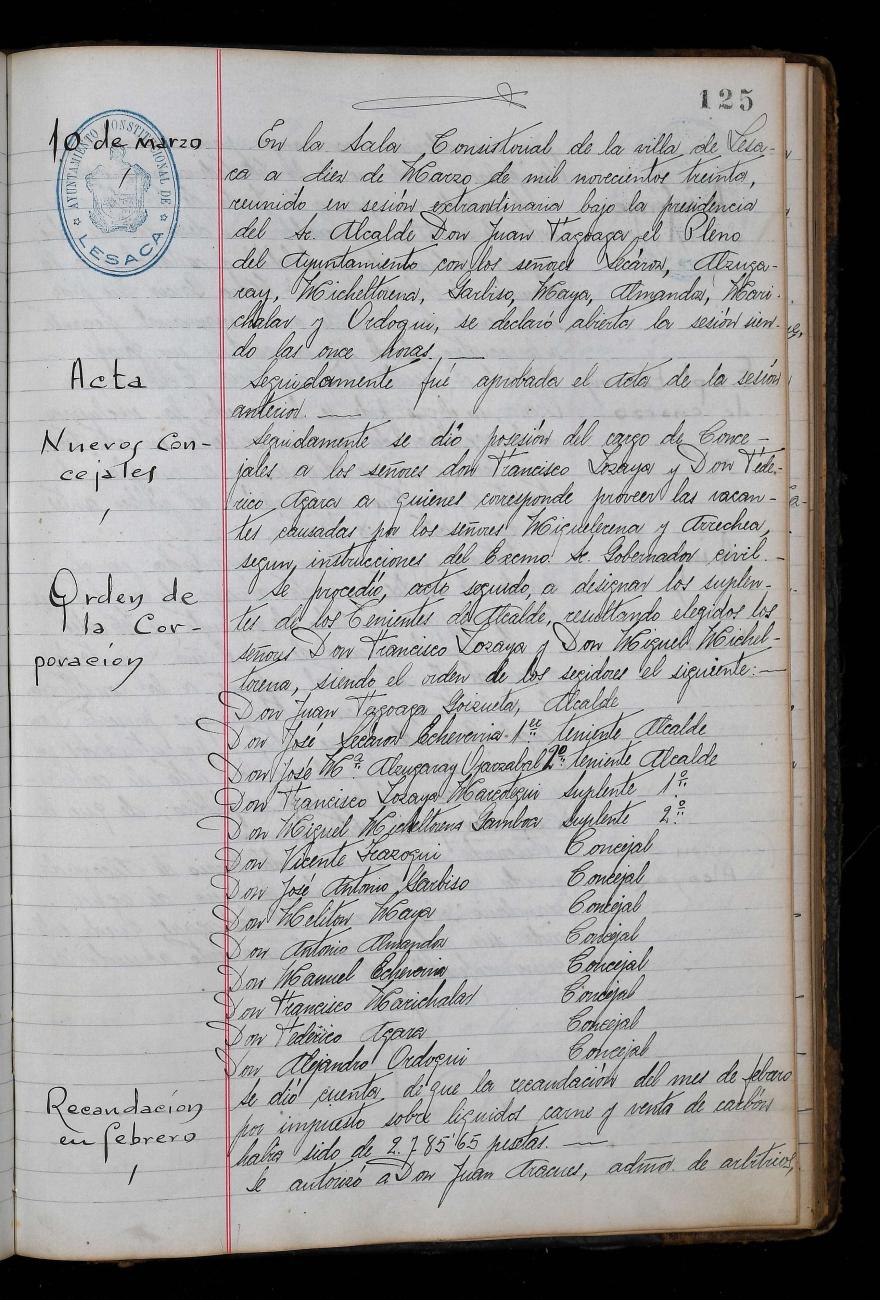 125
10 de Marzo
AYUNTAMIENTO CONSTITUCIONAL DE
LESACA
En la Sala Consistorial de la villa de Lesa-
ca a diez de Marzo de mil novecientos treinta,
reunido en sesión extraordinaria bajo la presidencia
del Sr. Alcalde Don Juan Tagoaga el Pleno
del Ayuntamiento con los señores Secáros, Alzuga-
ray, Micheltorena, Garbiso, Maya, Almandoz, Mari-
chalar y Ordoqui, se declaró abierta la sesión sien-
do las once horas. —
Acta
Seguidamente fué aprobada el acta de la sesión
anterior. —
Nuevos Con-
cejales
Seguidamente se dió posesión del cargo de Conce-
jales a los señores don Francisco Lozaya y Don Fede-
rico Agara a quienes corresponde proveer las vacan-
tes causadas por los señores Miguelerena y Arrechea,
segun instrucciones del Excmo. Sr. Gobernador civil. -
Orden de
la Cor-
poración
Se procedió, acto seguido, a designar los suplen-
tes de los Tenientes de Alcalde, resultando elegidos los
señores Don Francisco Lozaya y Don Miguel Michel-
torena, siendo el orden de los regidores el siguiente: —
Don Juan Tagoaga Goizueta, Alcalde
Don José Secáros Echeverria - 1er teniente Alcalde
Don José Mª Alzugaray Oparzabal 2º teniente Alcalde
Don Francisco Lozaya Marcotegui Suplente 1º
Don Miguel Micheltorena Gamboa Suplente 2º
Don Vicente Irazoqui Concejal
Don José Antonio Garbiso Concejal
Don Meliton Maya Concejal
Don Antonio Almandoz Concejal
Don Manuel Echeverria Concejal
Don Francisco Marichalar Concejal
Don Federico Agara Concejal
Don Alejandro Ordoqui Concejal
Recaudación
en febrero
Se dió cuenta de que la recaudación del mes de febrero
por impuesto sobre liquidos carne y venta de carbón
habia sido de 2.785'65 pesetas. —
Se autorizó a Don Juan admor. de arbitrios,